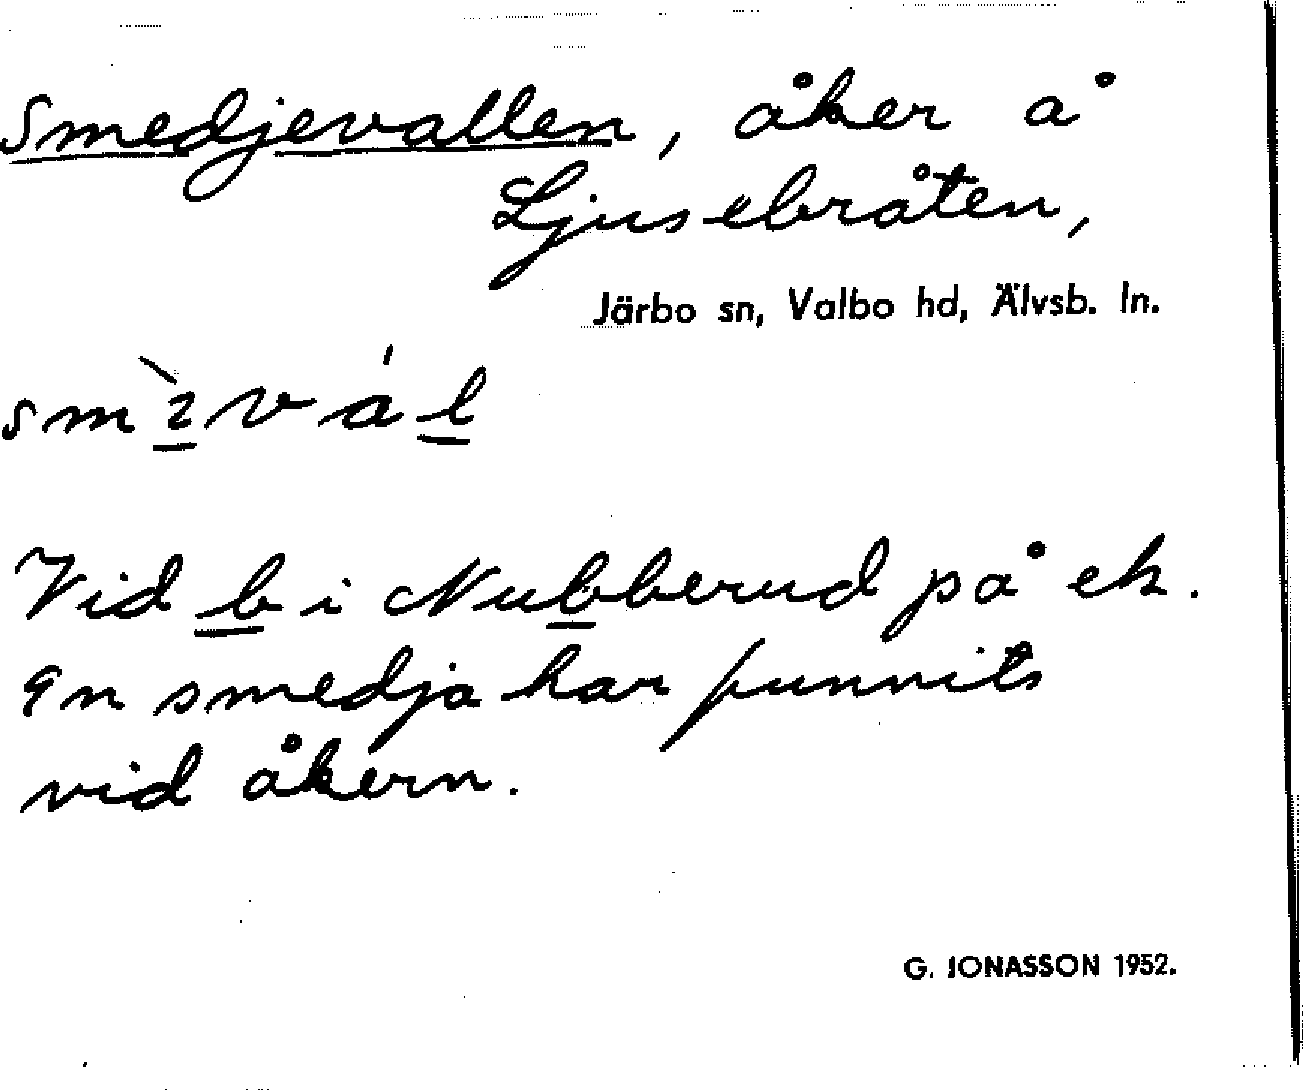 Smedjevallen, åker å
Ljusebråten,
Järbo sn, Valbo hd, Älvsb. ln.
Vid b i Nubberud på ek.
En smedja har funnits
vid åkern.
G. JONASSON 1952.